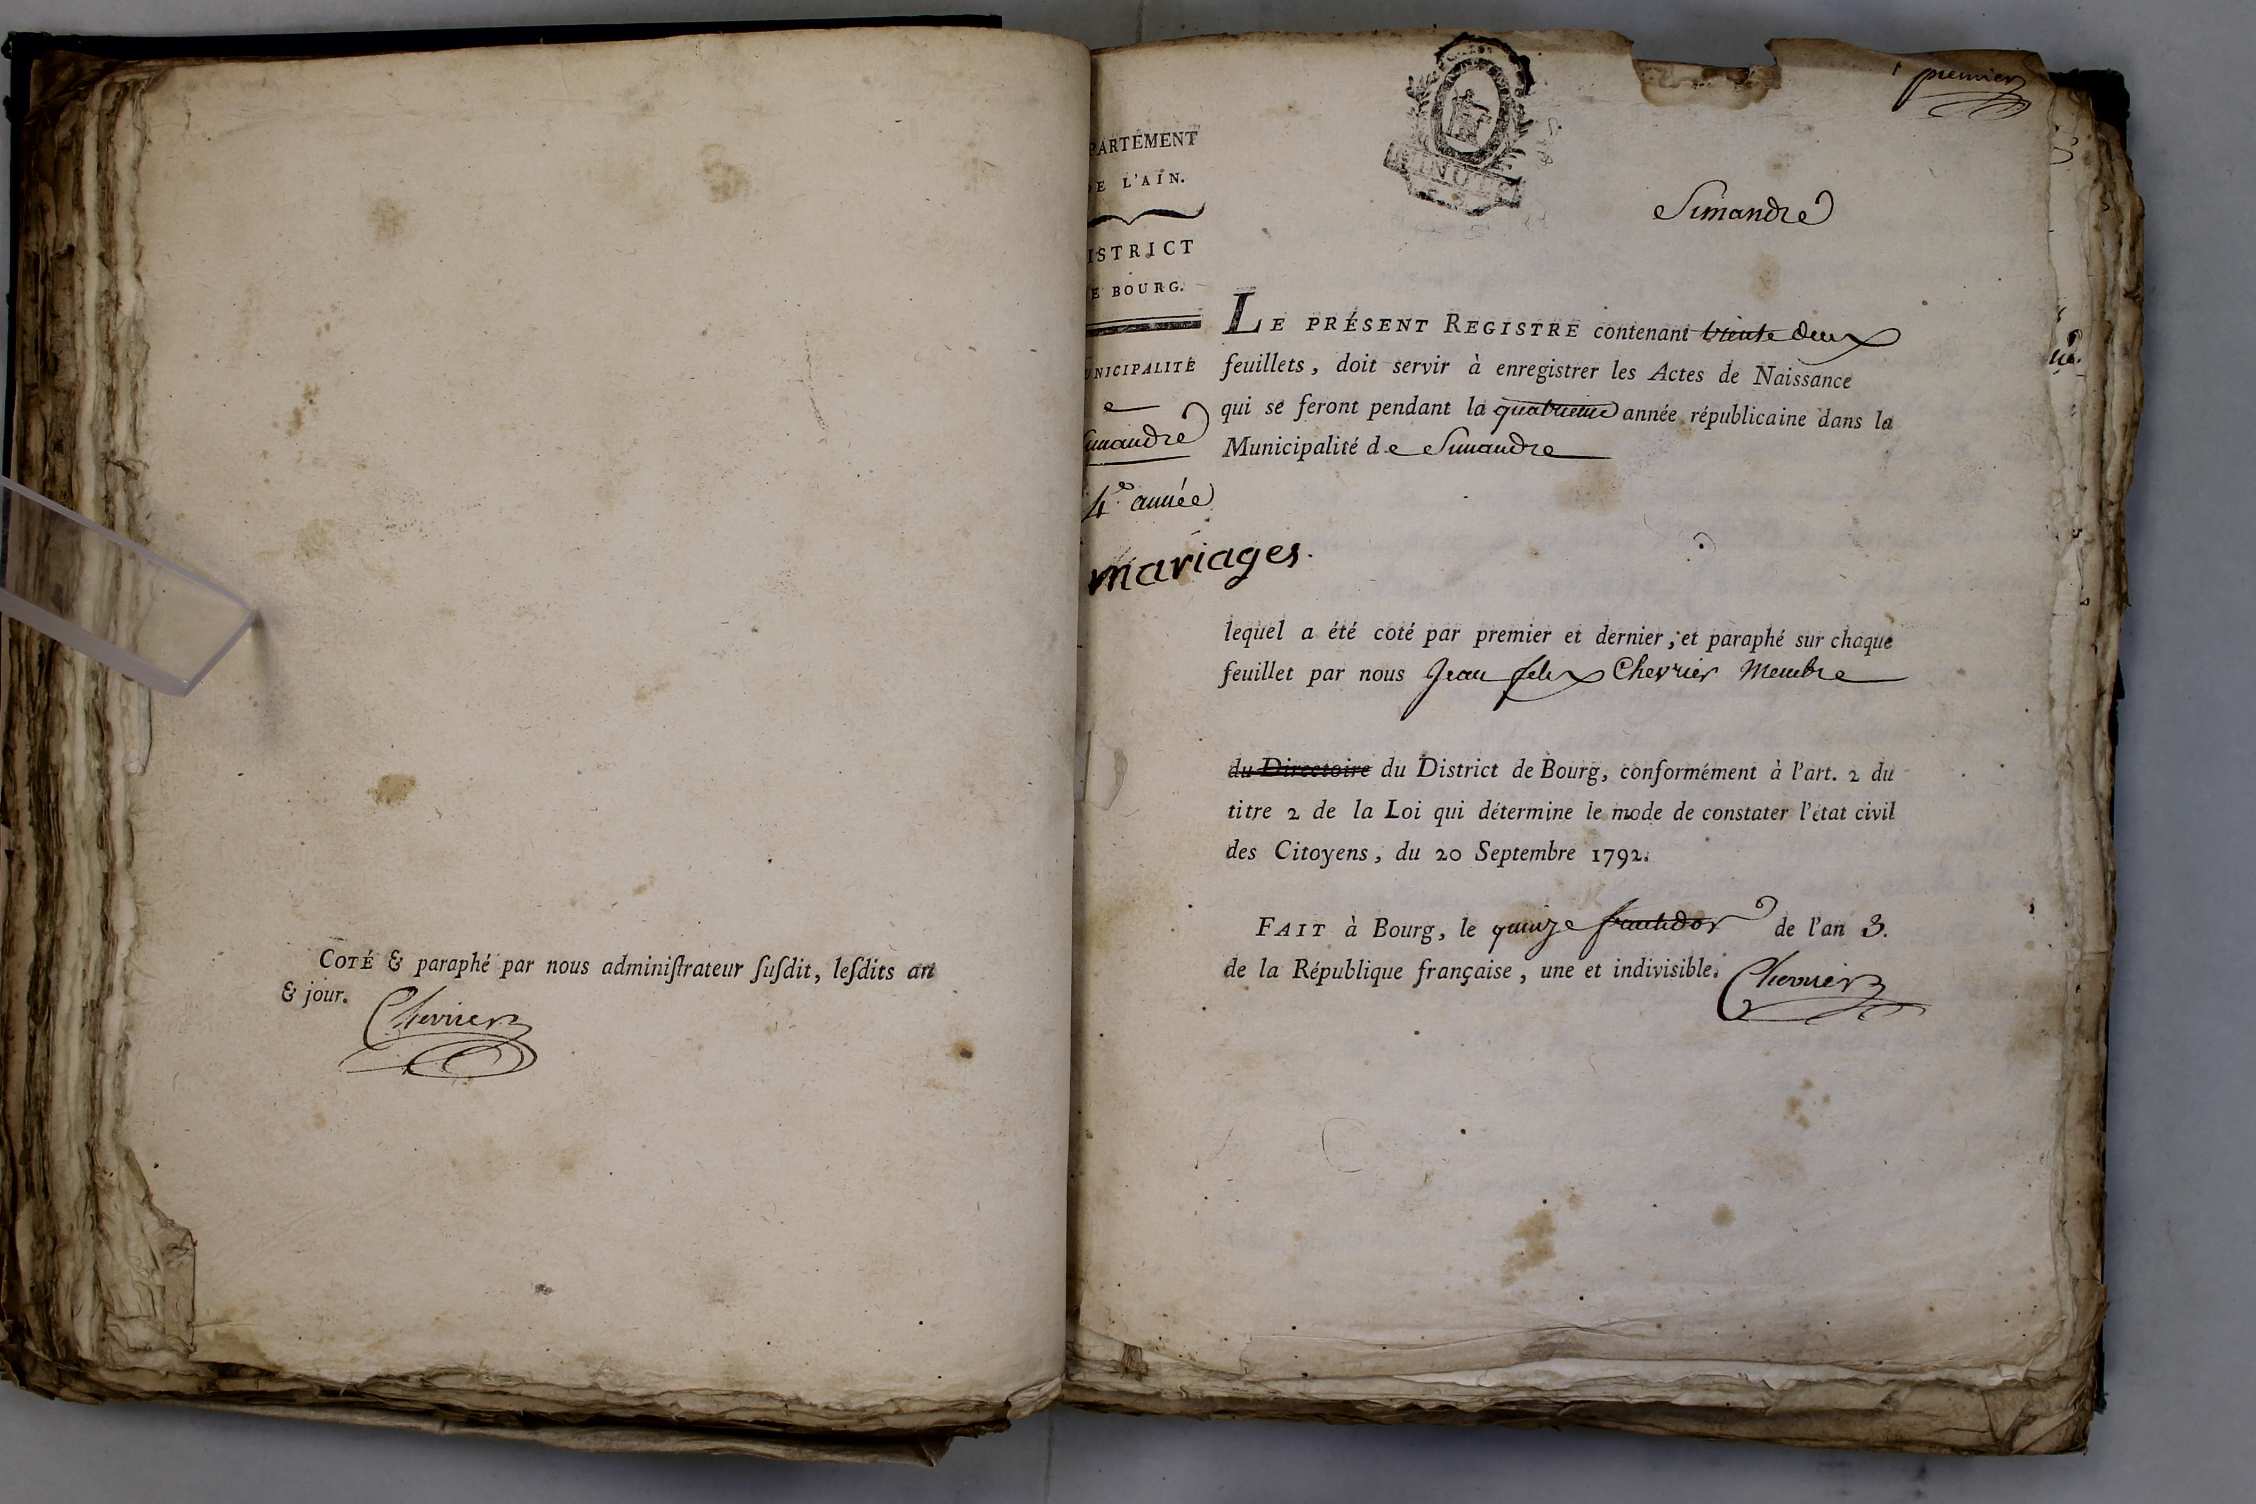 COTÉ & paraphé par nous adminiſtrateur ſuſdit, leſdits an
& jour.
Chevrier
premier
PARTEMENT
DE L'AIN.
ISTRICT
E BOURG.
UNICIPALITÉ
e
Simandre
4.e année
mariages.
Simandre
LE PRÉSENT REGISTRE contenant trente deux
feuillets, doit servir à enregistrer les Actes de Naissance
qui se feront pendant la quatrieme année républicaine dans la
Municipalité de Simandre
lequel a été coté par premier et dernier, et paraphé sur chaque
feuillet par nous Jean felix Chevrier Membre
du Directoire du District de Bourg, conformément à l'art. 2 du
titre 2 de la Loi qui détermine le mode de constater l'état civil
des Citoyens, du 20 Septembre 1792.
FAIT à Bourg, le quinze fructidor de l'an 3.
de la République française, une et indivisible.
Chevrier